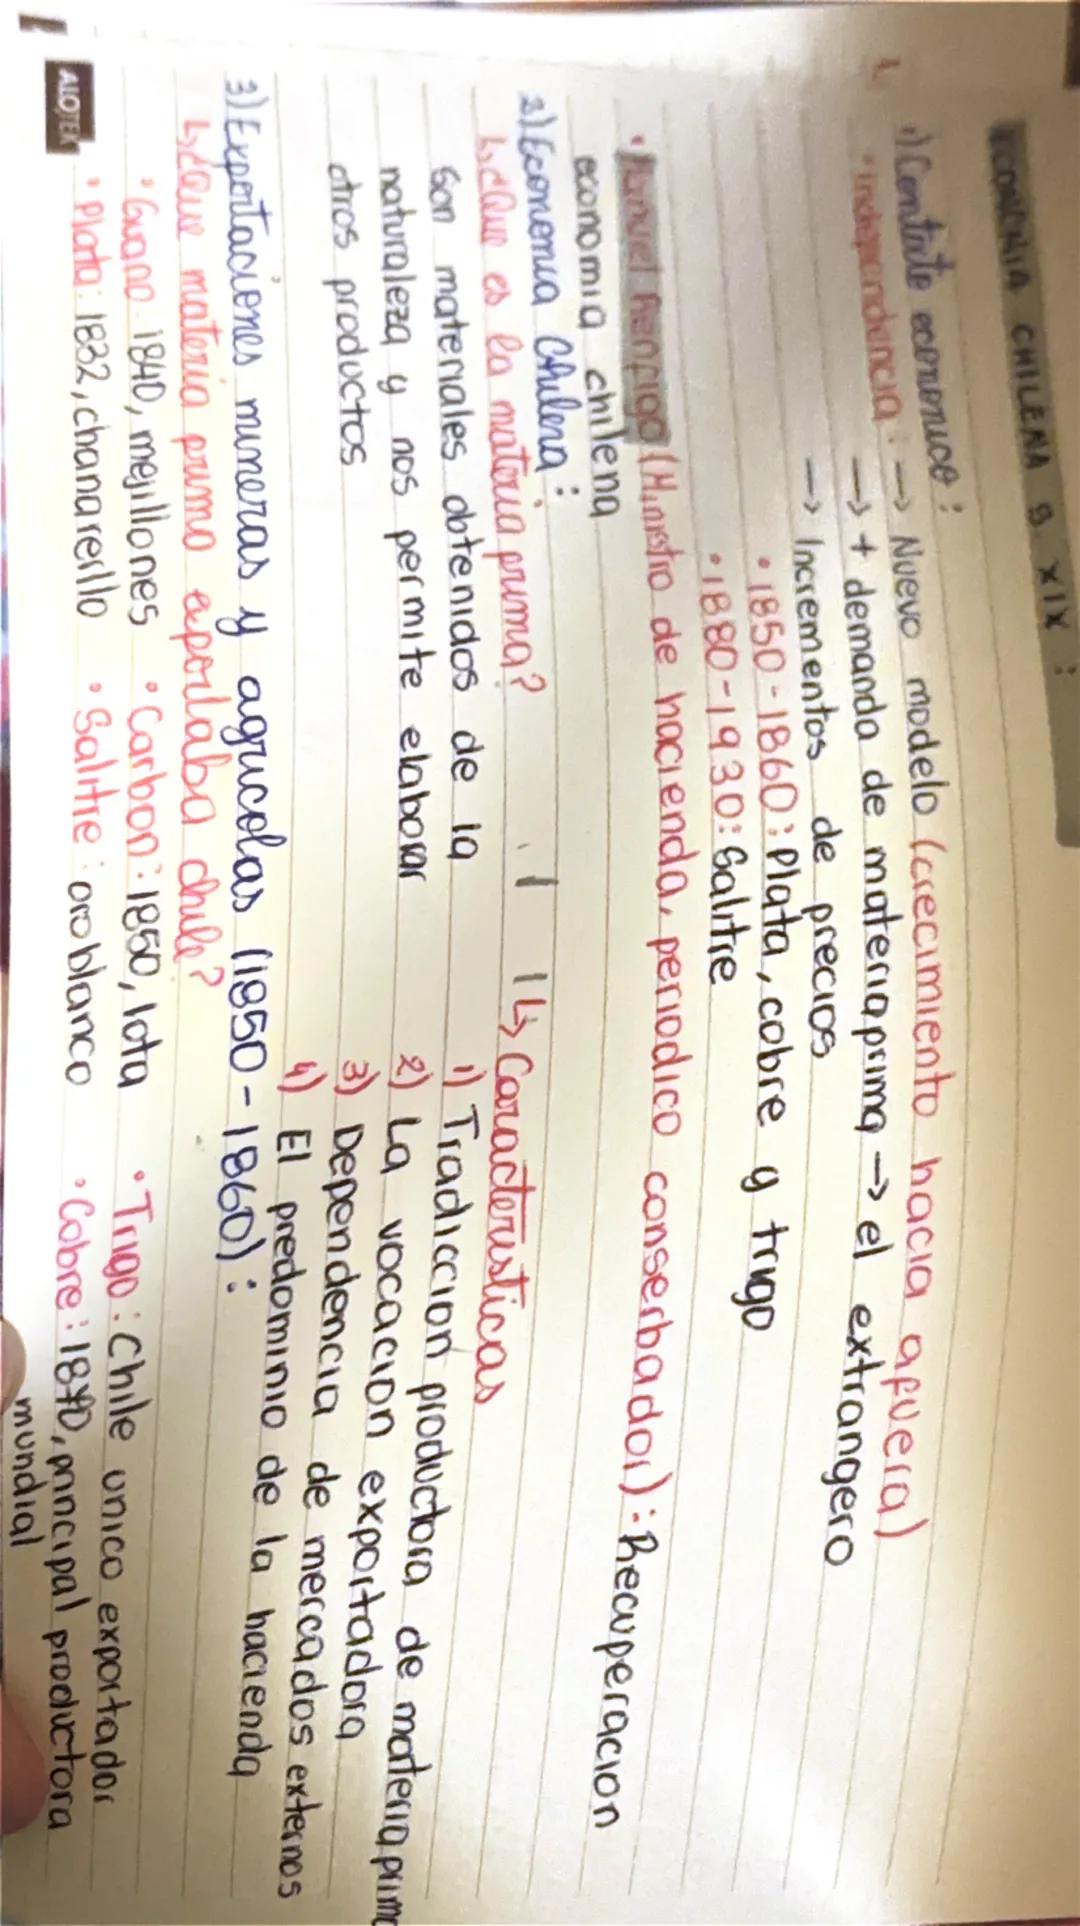 ECONOMIA CHILENA S. XIX :
1) Contexto economico :
• Independencia : → Nuevo modelo (crecimiento hacia afuera)
→ + demanda de materia prima → el extrangero
→ Incrementos de precios
• 1850-1860 : Plata, cobre y trigo
• 1880-1930: Salitre
• Manuel Rengigo (Ministro de hacienda, periodico conserbador) : Recuperacion
economia chilena
2) Economia Chilena :
↳ ¿Que es la materia prima?
Son materiales obtenidos de la
naturaleza y nos permite elaborar
otros productos
↳ Caracteristicas
1) Tradiccion productora de materia prima
2) La vocacion exportadora
3) Dependencia de mercados externos
4) El predominio de la hacienda
3) Exportaciones mineras y agricolas (1850-1860) :
↳ ¿Que materia prima exportaba chile?
• Guano : 1840, mejillones • Carbon : 1850, lota • Trigo : Chile unico exportador
• Plata : 1832, chanarcillo • Salitre : oro blanco • Cobre : 1840, principal productora
mundial
ALOTEK